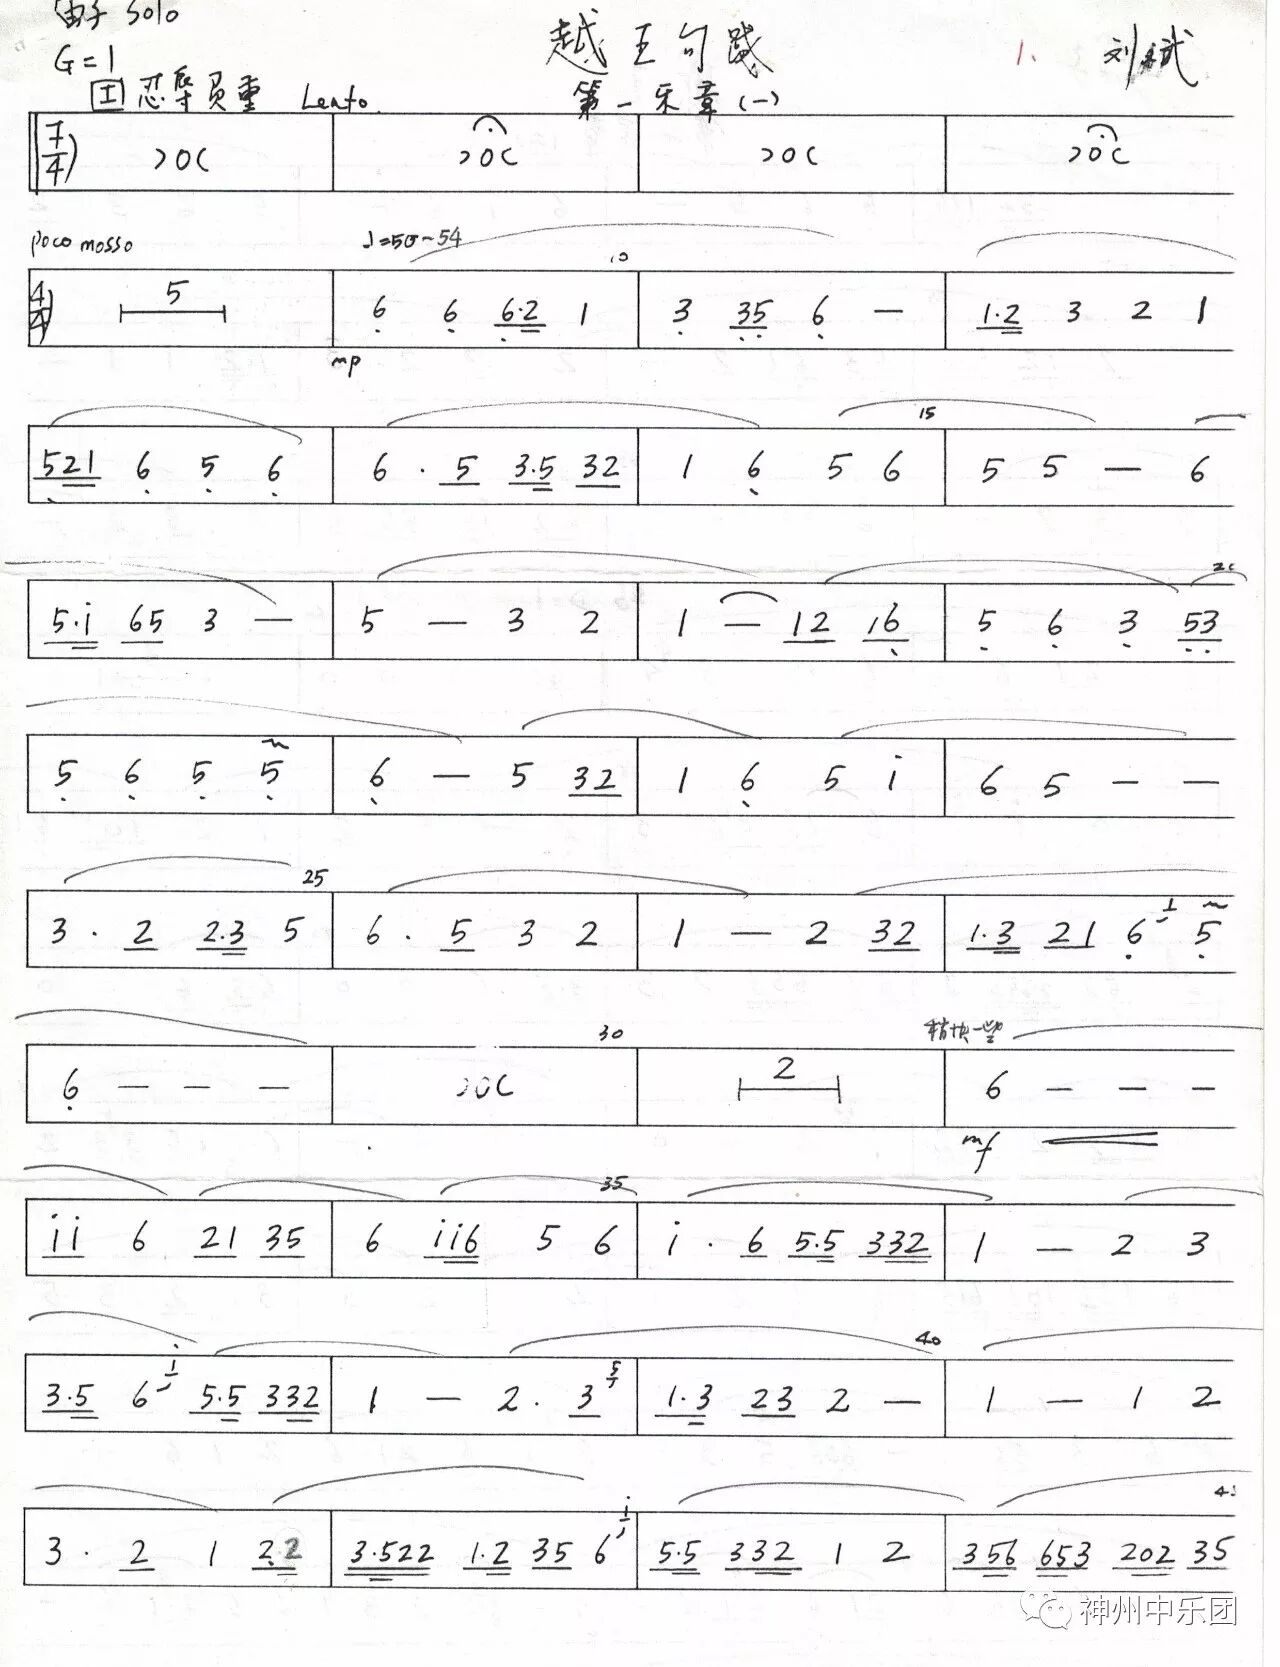 曲子 Solo
越王句践
1. 刘斌
G=1
I 忍辱负重 Lento.
第一乐章(一)
7/4 >0< >0< >0< >0<
poco mosso ♩=50~54 10
4/4 5 | 6 6 6·2 1 | 3 35 6 — | 1·2 3 2 1
mp
15
521 6 5 6 | 6 · 5 3·5 32 | 1 6 5 6 | 5 5 — 6
20
5·i 65 3 — | 5 — 3 2 | 1 — 12 16 | 5 6 3 53
5 6 5 5 | 6 — 5 32 | 1 6 5 i | 6 5 — —
25
3 · 2 2·3 5 | 6 · 5 3 2 | 1 — 2 32 | 1·3 21 6 1 5
30 稍快一些
6 — — — | >0< | 2 | 6 — — —
mf
35
ii 6 21 35 | 6 ii6 5 6 | i · 6 5·5 332 | 1 — 2 3
40
3·5 6 i 5·5 332 | 1 — 2 · 3 5 | 1·3 23 2 — | 1 — 1 2
3 · 2 1 2·2 | 3·522 1·2 35 6 i | 5·5 332 1 2 | 356 653 202 35
神州中乐团